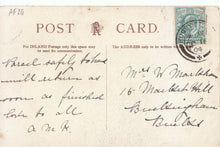 AF20
POST CARD.
For INLAND Postage only this space may be used for communication.
The ADDRESS only to be written here.
Parcel safely to hand
will return as
soon as finished
love to all
A. M. R.
Mrs W
16 Market Hill
Buckingham
Bucks